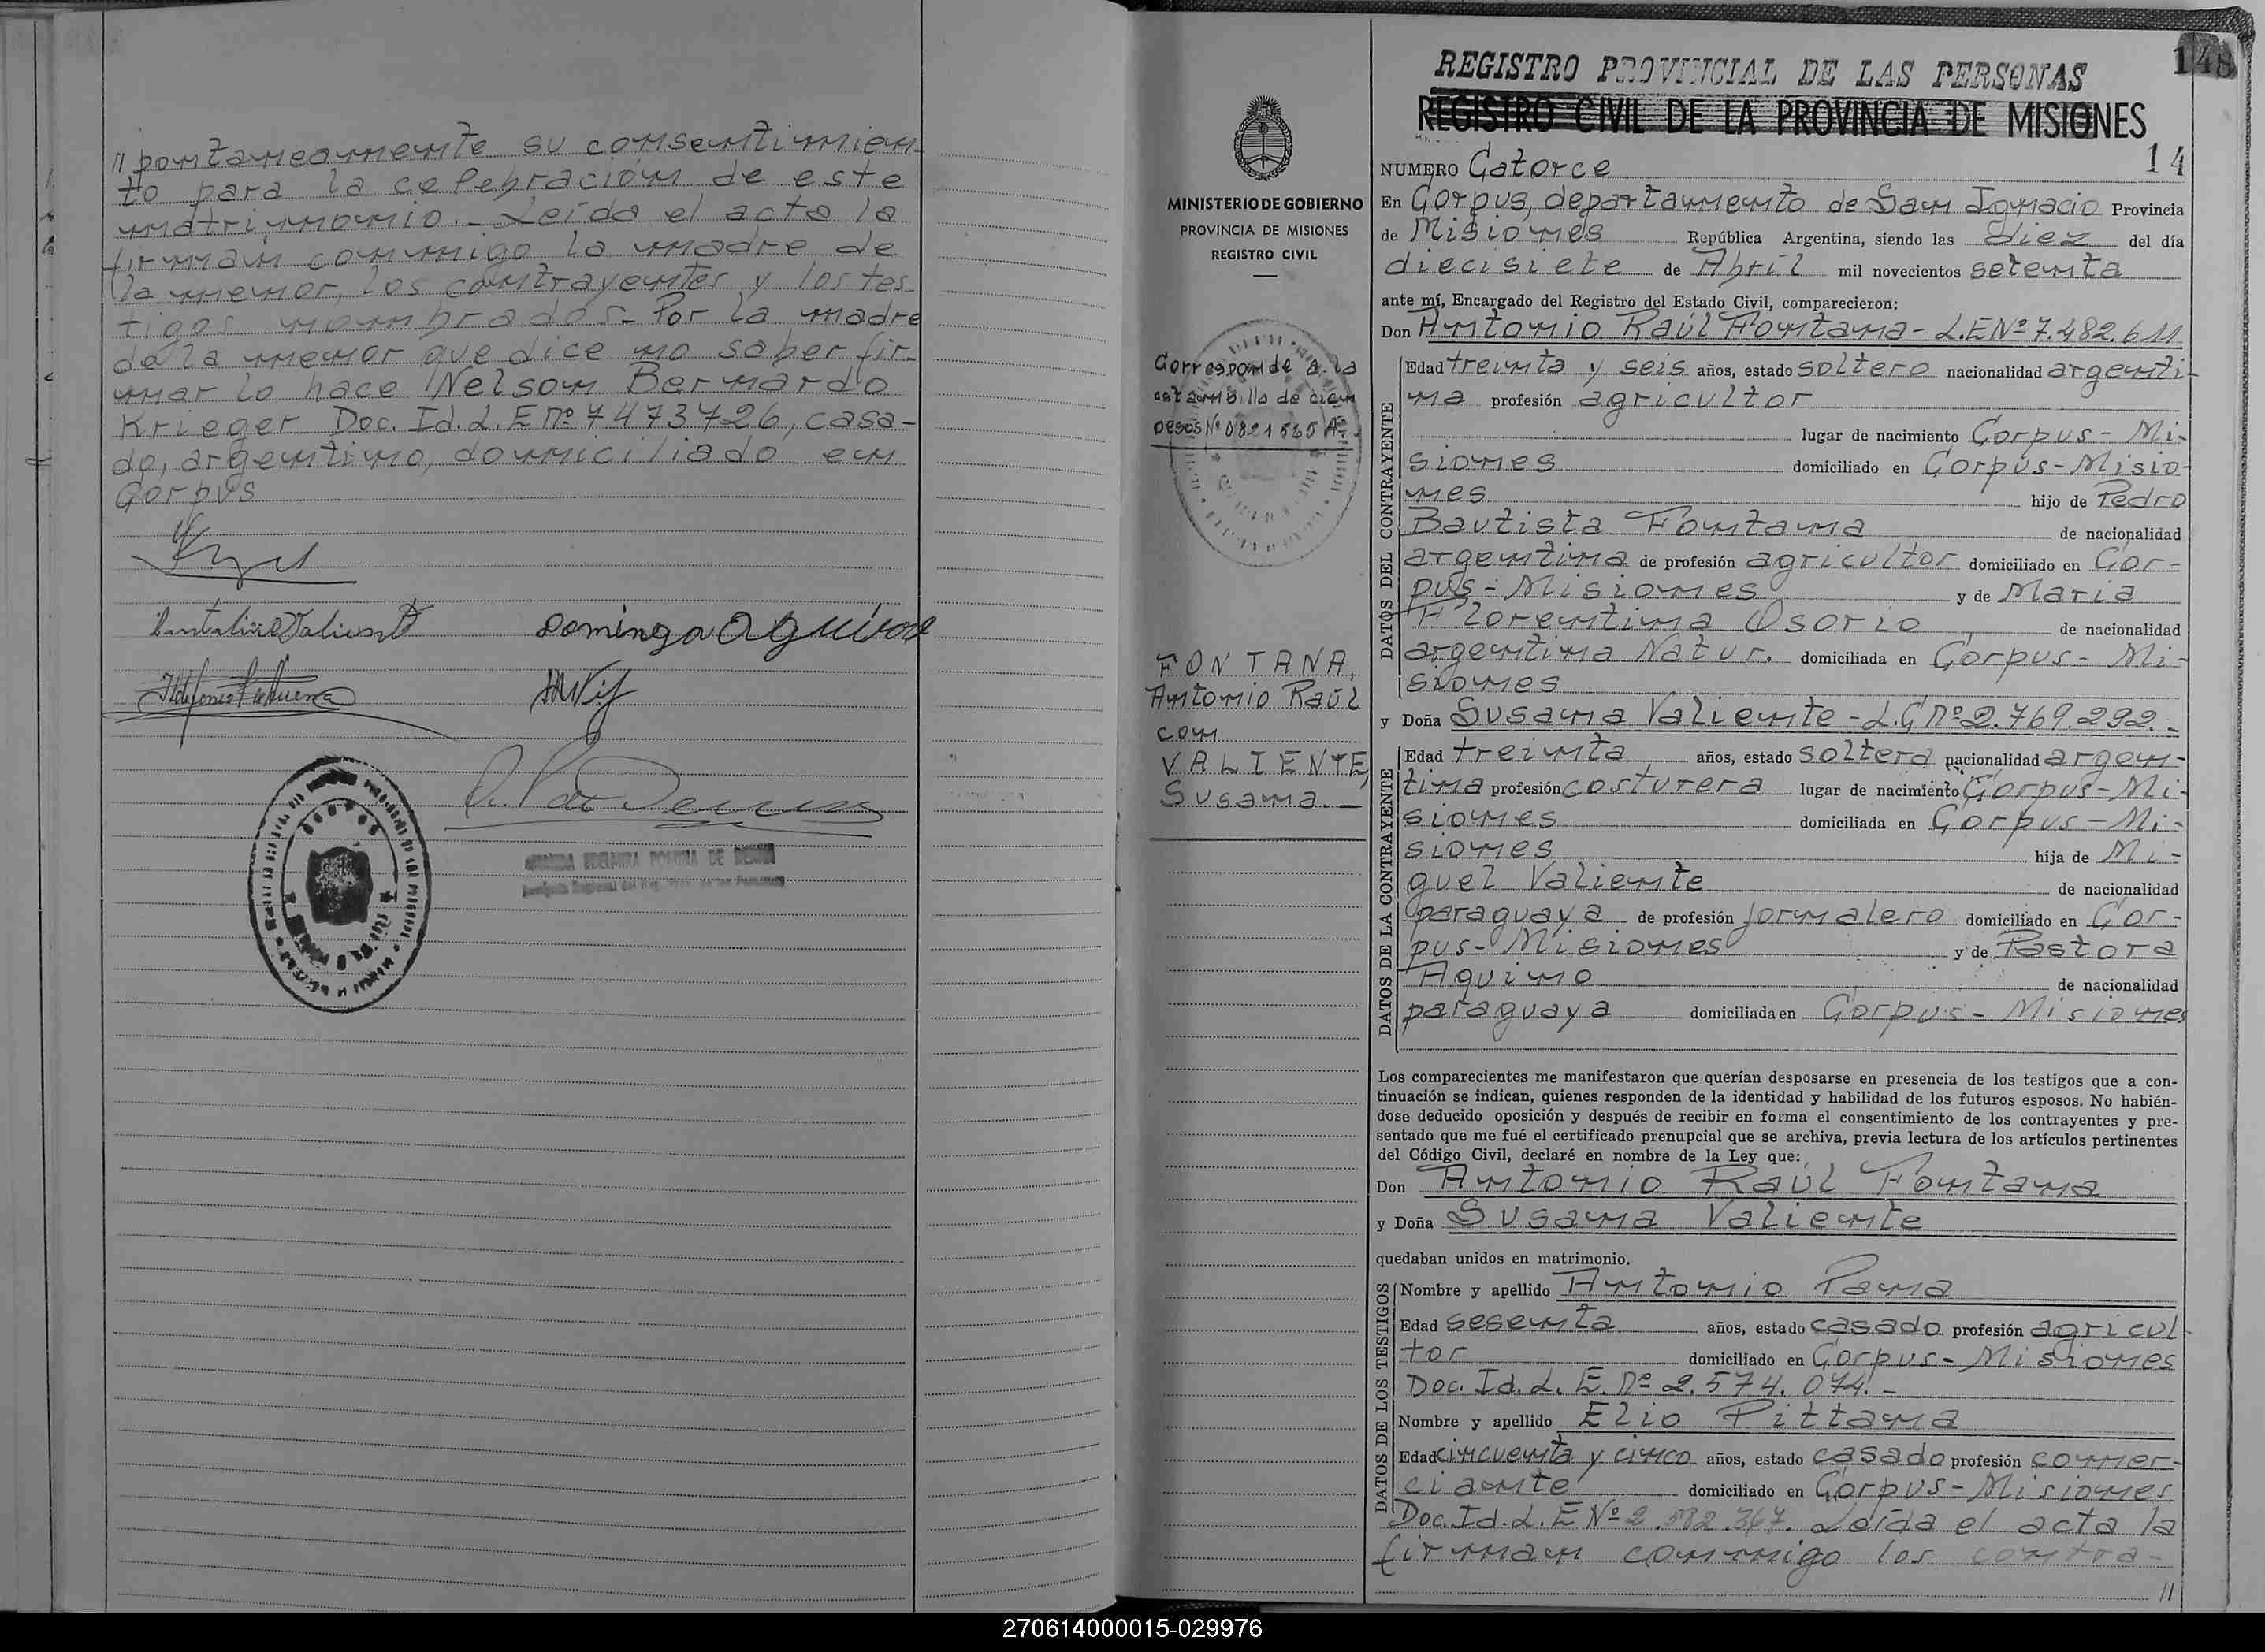 //pontaneamente su consentimien-
to para la celebración de este
matrimonio.- Leída el acta la
firman conmigo la madre de
la menor, los contrayentes y los tes-
tigos nombrados.- Por la madre
de la menor que dice no saber fir-
mar lo hace Nelson Bernardo
Krieger Doc. Id. L. E nº 7473726, casa-
do, argentino, domiciliado en
Corpus
Domingo Aguirre
148
REGISTRO PROVINCIAL DE LAS PERSONAS
REGISTRO CIVIL DE LA PROVINCIA DE MISIONES
14
MINISTERIO DE GOBIERNO
PROVINCIA DE MISIONES
REGISTRO CIVIL
Corresponde a la
estampilla de cien
pesos Nº 0821565 A
FONTANA,
Antonio Raúl
con
VALIENTE,
Susana.-
NUMERO Catorce
En Corpus, departamento de San Ignacio Provincia
de Misiones República Argentina, siendo las diez del día
diecisiete de Abril mil novecientos setenta
ante mí, Encargado del Registro del Estado Civil, comparecieron:
Don Antonio Raúl Fontana - L.E Nº 7.482.611
DATOS DEL CONTRAYENTE
Edad treinta y seis años, estado soltero nacionalidad argenti-
na profesión agricultor
lugar de nacimiento Corpus - Mi-
siones domiciliado en Corpus - Misio-
nes hijo de Pedro
Bautista Fontana de nacionalidad
argentina de profesión agricultor domiciliado en Cor-
pus - Misiones y de María
Florentina Osorio de nacionalidad
argentina Natur. domiciliada en Corpus - Mi-
siones
y Doña Susana Valiente - L.C nº 2.769.292.-
DATOS DE LA CONTRAYENTE
Edad treinta años, estado soltera nacionalidad argen-
tina profesión costurera lugar de nacimiento Corpus - Mi-
siones domiciliada en Corpus - Mi-
siones hija de Mi-
guel Valiente de nacionalidad
paraguaya de profesión jornalero domiciliado en Cor-
pus - Misiones y de Pastora
Aquino de nacionalidad
paraguaya domiciliada en Corpus - Misiones
Los comparecientes me manifestaron que querían desposarse en presencia de los testigos que a con-
tinuación se indican, quienes responden de la identidad y habilidad de los futuros esposos. No habién-
dose deducido oposición y después de recibir en forma el consentimiento de los contrayentes y pre-
sentado que me fué el certificado prenupcial que se archiva, previa lectura de los artículos pertinentes
del Código Civil, declaré en nombre de la Ley que:
Don Antonio Raúl Fontana
y Doña Susana Valiente
quedaban unidos en matrimonio.
DATOS DE LOS TESTIGOS
Nombre y apellido Antonio Pana
Edad sesenta años, estado casado profesión agricul-
tor domiciliado en Corpus - Misiones
Doc. Id. L. E. nº 2.574.074.-
Nombre y apellido Elio Pittana
Edad cincuenta y cinco años, estado casado profesión comer-
ciante domiciliado en Corpus - Misiones
Doc. Id. L. E Nº 2.582.367. Leída el acta la
firman conmigo los contra-
//
270614000015-029976